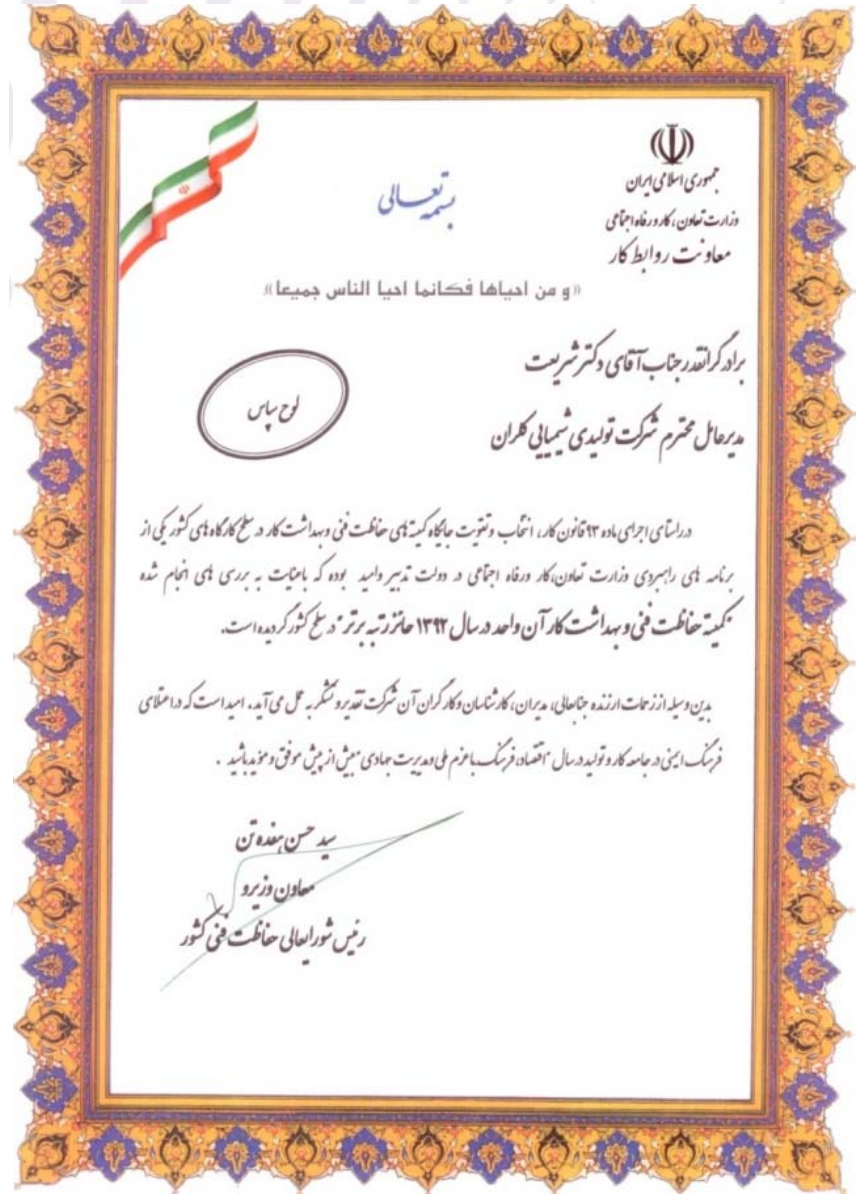 جمهوری اسلامی ایران
وزارت تعاون، کار و رفاه اجتماعی
معاونت روابط کار
بسمه تعالی
«و من احیاها فکانما احیا الناس جمیعا»
برادر گرانقدر جناب آقای دکتر شریعت
مدیرعامل محترم شرکت تولیدی شیمیایی کلران
لوح سپاس
در راستای اجرای ماده ۹۳ قانون کار، انتخاب و تقویت جایگاه کمیته های حفاظت فنی و بهداشت کار در سطح کارگاه های کشور یکی از
برنامه های راهبردی وزارت تعاون،کار ورفاه اجتماعی در دولت تدبیر وامید بوده که باعنایت به بررسی های انجام شده
"کمیته حفاظت فنی و بهداشت کار آن واحد در سال ۱۳۹۲ حائز رتبه برتر" در سطح کشور گردیده است.
بدین وسیله از زحمات ارزنده جنابعالی، مدیران، کارشناسان و کارگران آن شرکت تقدیر و تشکر به عمل می آید. امید است که در اعتلای
فرهنگ ایمنی در جامعه کار و تولید در سال "اقتصاد، فرهنگ با عزم ملی و مدیریت جهادی" بیش از پیش موفق و مؤید باشید .
سید حسن هفده تن
معاون وزیر و
رئیس شورایعالی حفاظت فنی کشور